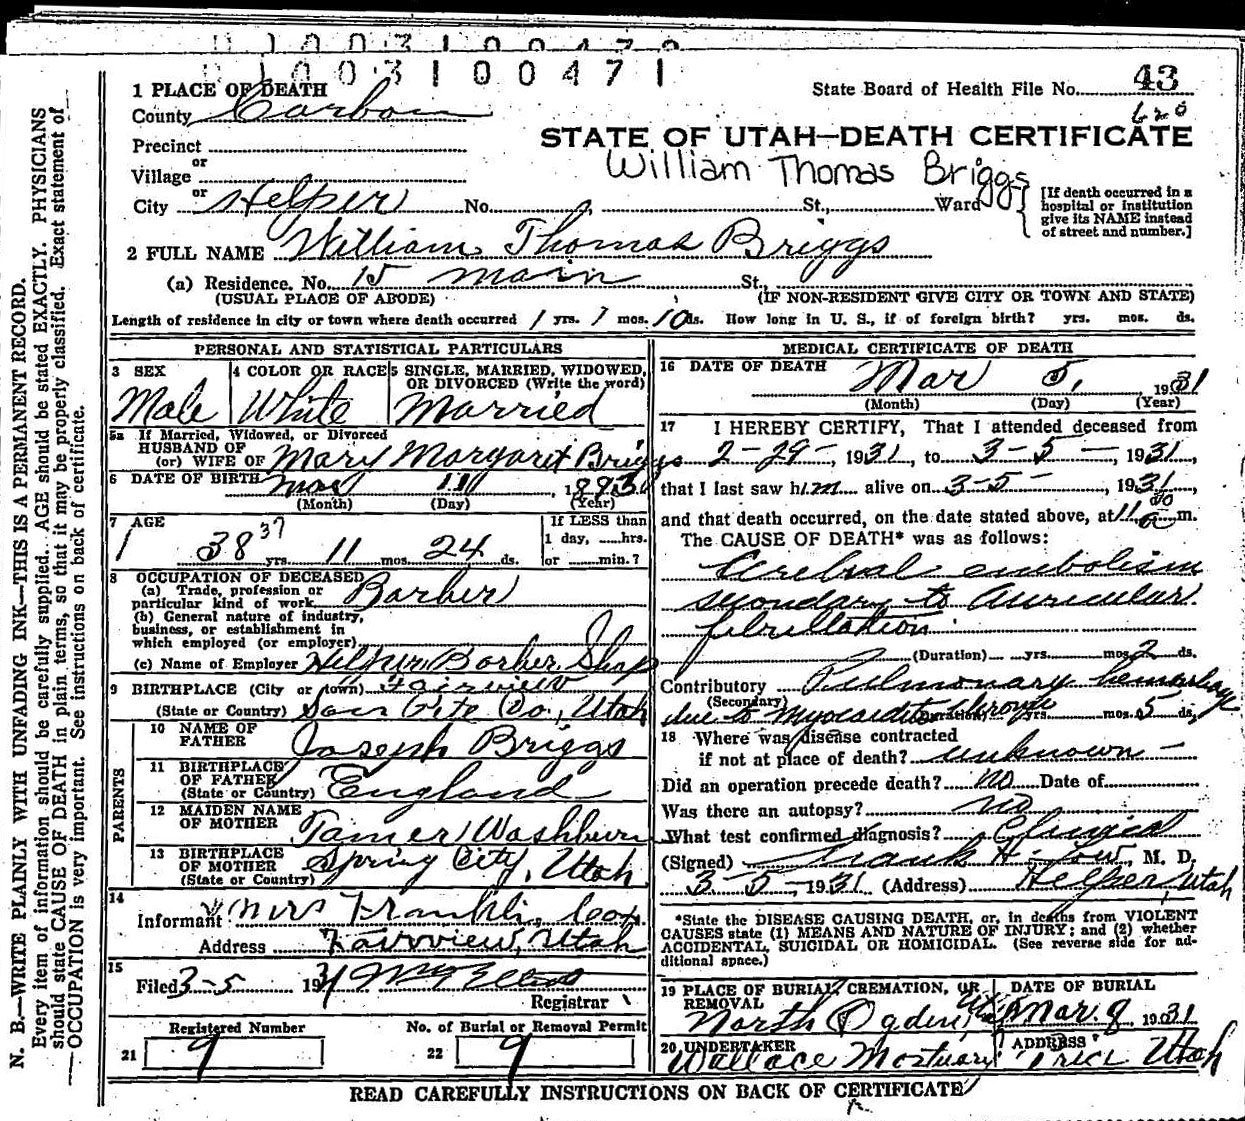 1 0 0 3 1 0 0 4 7 1
1 PLACE OF DEATH
State Board of Health File No. 43
County Carbon
620
STATE OF UTAH—DEATH CERTIFICATE
Precinct
or
William Thomas Briggs
Village
or
City Helper No. St., Ward
[If death occurred in a hospital or institution give its NAME instead of street and number.]
2 FULL NAME William Thomas Briggs
(a) Residence. No. 15 Main St.,
(USUAL PLACE OF ABODE) (IF NON-RESIDENT GIVE CITY OR TOWN AND STATE)
Length of residence in city or town where death occurred 1 yrs. 7 mos. 10 ds. How long in U. S., if of foreign birth? yrs. mos. ds.
PERSONAL AND STATISTICAL PARTICULARS
3 SEX 4 COLOR OR RACE 5 SINGLE, MARRIED, WIDOWED, OR DIVORCED (Write the word)
Male White Married
5a If Married, Widowed, or Divorced
HUSBAND OF
(or) WIFE OF Mary Margaret Briggs
6 DATE OF BIRTH Mar 11, 1893
(Month) (Day) (Year)
7 AGE
38 37 yrs. 11 mos. 24 ds.
If LESS than 1 day, hrs. or min.?
8 OCCUPATION OF DECEASED
(a) Trade, profession or particular kind of work Barber
(b) General nature of industry, business, or establishment in which employed (or employer)
(c) Name of Employer Helper Barber Shop
9 BIRTHPLACE (City or town) Fairview
(State or Country) San Pete Co., Utah
PARENTS
10 NAME OF FATHER Joseph Briggs
11 BIRTHPLACE OF FATHER (State or Country) England
12 MAIDEN NAME OF MOTHER Tamer Washburn
13 BIRTHPLACE OF MOTHER (State or Country) Spring City, Utah
14
Informant Mrs Franklin Cox.
Address Fairview, Utah
15
Filed 3-5 1931
Registrar
Registered Number No. of Burial or Removal Permit
21 9 22 9
MEDICAL CERTIFICATE OF DEATH
16 DATE OF DEATH Mar 5, 1931
(Month) (Day) (Year)
17 I HEREBY CERTIFY, That I attended deceased from
2-29-, 1931, to 3-5-, 1931,
that I last saw him alive on 3-5-, 1931
and that death occurred, on the date stated above, at 11 30 a m.
The CAUSE OF DEATH* was as follows:
Cerebral embolism
secondary to Auricular
fibrillation
(Duration) yrs. mos. 2 ds.
Contributory Pulmonary hemorrhage
(Secondary)
due to myocarditis (Duration) yrs. mos. 5 ds.
18 Where was disease contracted
if not at place of death? unknown -
Did an operation precede death? no Date of
Was there an autopsy? no
What test confirmed diagnosis? Clinical
(Signed) Frank H. Low, M. D.
3-5-1931 (Address) Helper, Utah
*State the DISEASE CAUSING DEATH, or, in deaths from VIOLENT
CAUSES state (1) MEANS AND NATURE OF INJURY; and (2) whether
ACCIDENTAL, SUICIDAL OR HOMICIDAL. (See reverse side for ad-
ditional space.)
19 PLACE OF BURIAL, CREMATION, OR REMOVAL DATE OF BURIAL
North Ogden, Utah Mar. 8, 1931
20 UNDERTAKER ADDRESS
Wallace Mortuary Price Utah
READ CAREFULLY INSTRUCTIONS ON BACK OF CERTIFICATE
N. B.—WRITE PLAINLY WITH UNFADING INK—THIS IS A PERMANENT RECORD.
Every item of information should be carefully supplied. AGE should be stated EXACTLY. PHYSICIANS
should state CAUSE OF DEATH in plain terms, so that it may be properly classified. Exact statement of
OCCUPATION is very important. See instructions on back of certificate.